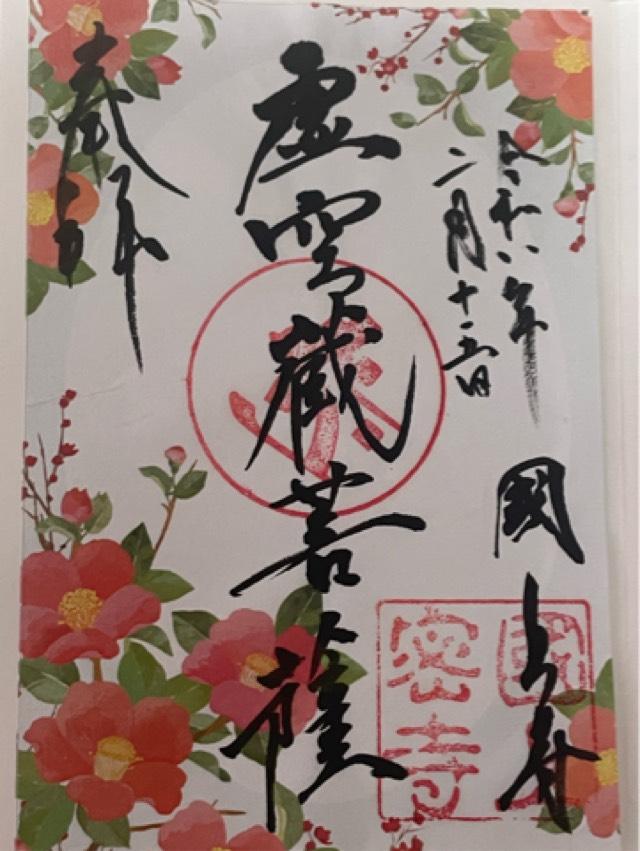 令和八年
二月十五日
國上寺
虚空蔵菩薩
奉拝
密寺